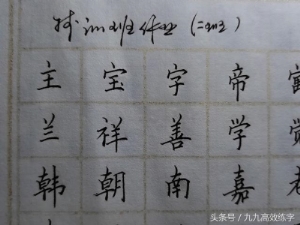 培训班作业（二）
主 宝 字 帝
兰 祥 善 学
韩 朝 南 嘉
头条号／九九高效练字